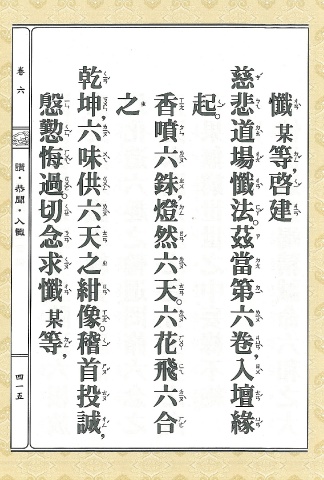 懺 某等，啓建
慈悲道場懺法。茲當第六卷，入壇緣
起。
香噴六銖燈然六天。六花飛六合
之
乾坤，六味供六天之紺像。稽首投誠，
慇懃悔過。切念求懺 某等，
卷六
讚·恭聞·入懺
四一五